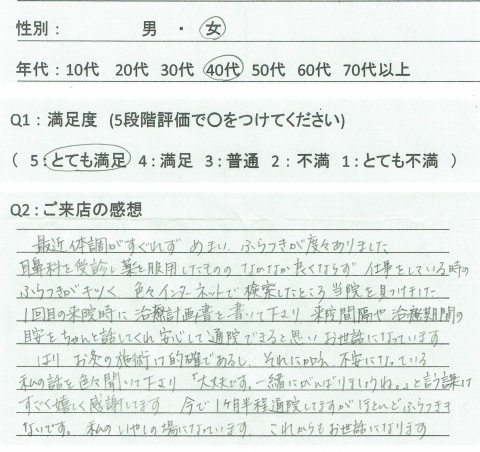 性別： 男 ・ 女
年代：10代 20代 30代 40代 50代 60代 70代以上
Q1：満足度 (5段階評価で〇をつけてください)
( 5：とても満足 4：満足 3：普通 2：不満 1：とても不満 )
Q2：ご来店の感想
最近体調がすぐれず めまい、ふらつきが度々ありました
耳鼻科を受診し薬を服用したものの なかなか良くならず 仕事をしている時の
ふらつきがキツく 色々インターネットで検索したところ当院を見つけました
1回目の来院時に治療計画書を書いて下さり 来院間隔や治療期間の
目安をちゃんと話してくれ 安心して通院できると思い お世話になっています
はり お灸の施術は的確であるし、それにかわる 不安になっている
私の話を色々聞いて下さり 「大丈夫です。一緒にがんばりましょうね。」と言う課は
すごく嬉しく感謝してます 今で1ヶ月半程通院してますがほとんどふらつきも
ないです。 私のいやしの場になっています これからもお世話になります